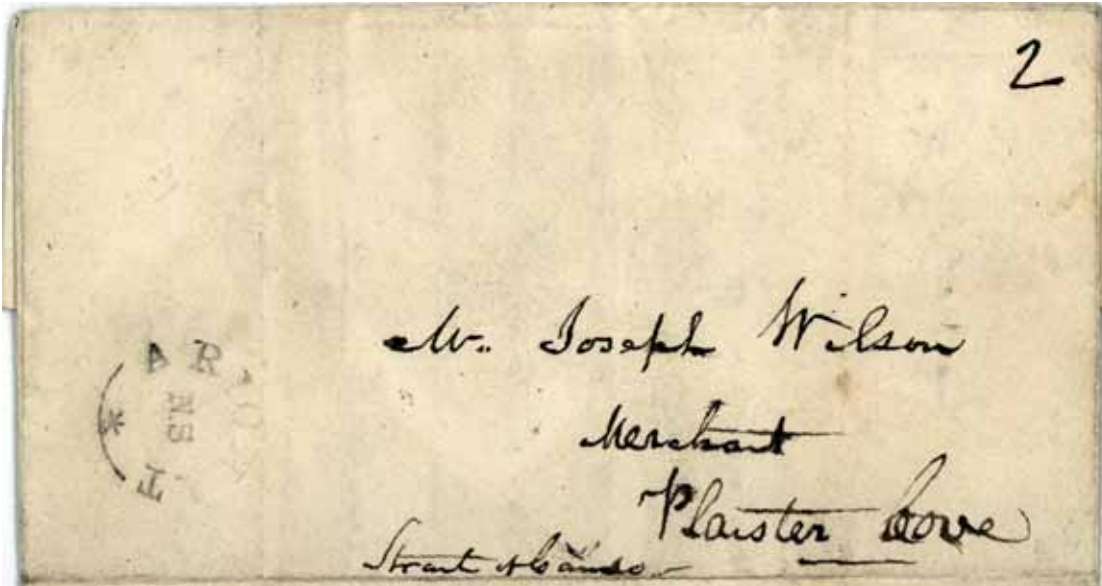 2
Mr. Joseph Wilson
Merchant
Plaister Cove
Strait of Canso
N.S